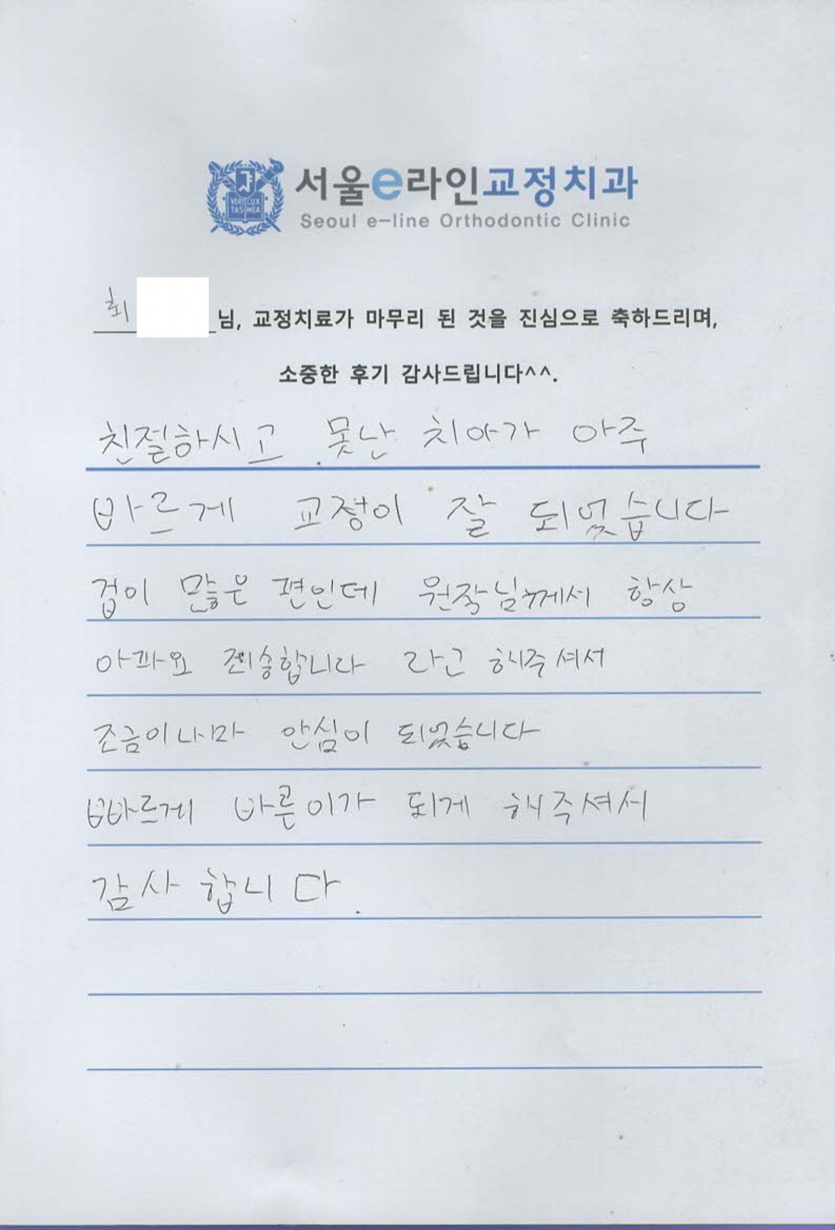 서울e라인교정치과
Seoul e-line Orthodontic Clinic
VERI LUX TAS MEA
최 님, 교정치료가 마무리 된 것을 진심으로 축하드리며,
소중한 후기 감사드립니다^^.
친절하시고 못난 치아가 아주
바르게 교정이 잘 되었습니다
겁이 많은 편인데 원장님께서 항상
아파요 죄송합니다 라고 해주셔서
조금이나마 안심이 되었습니다
빠르게 바른이가 되게 해주셔서
감사합니다.